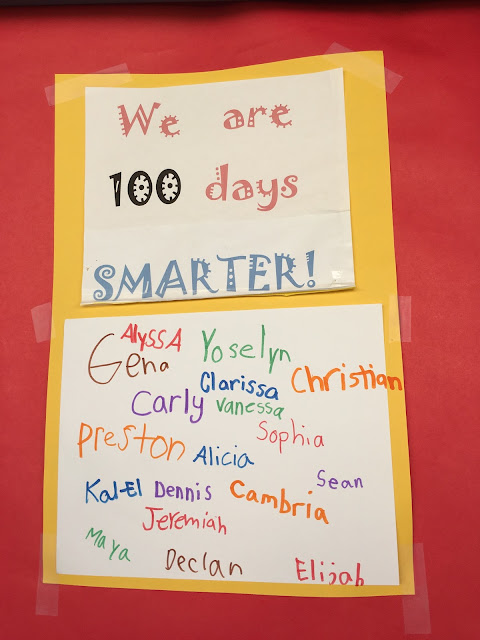 We are
100 days
SMARTER!
AlyssA Yoselyn
Gena
Clarissa Christian
Carly Vanessa
Sophia
Preston Alicia
Sean
Kal-El Dennis Cambria
Jeremiah
Maya
Declan Elijah